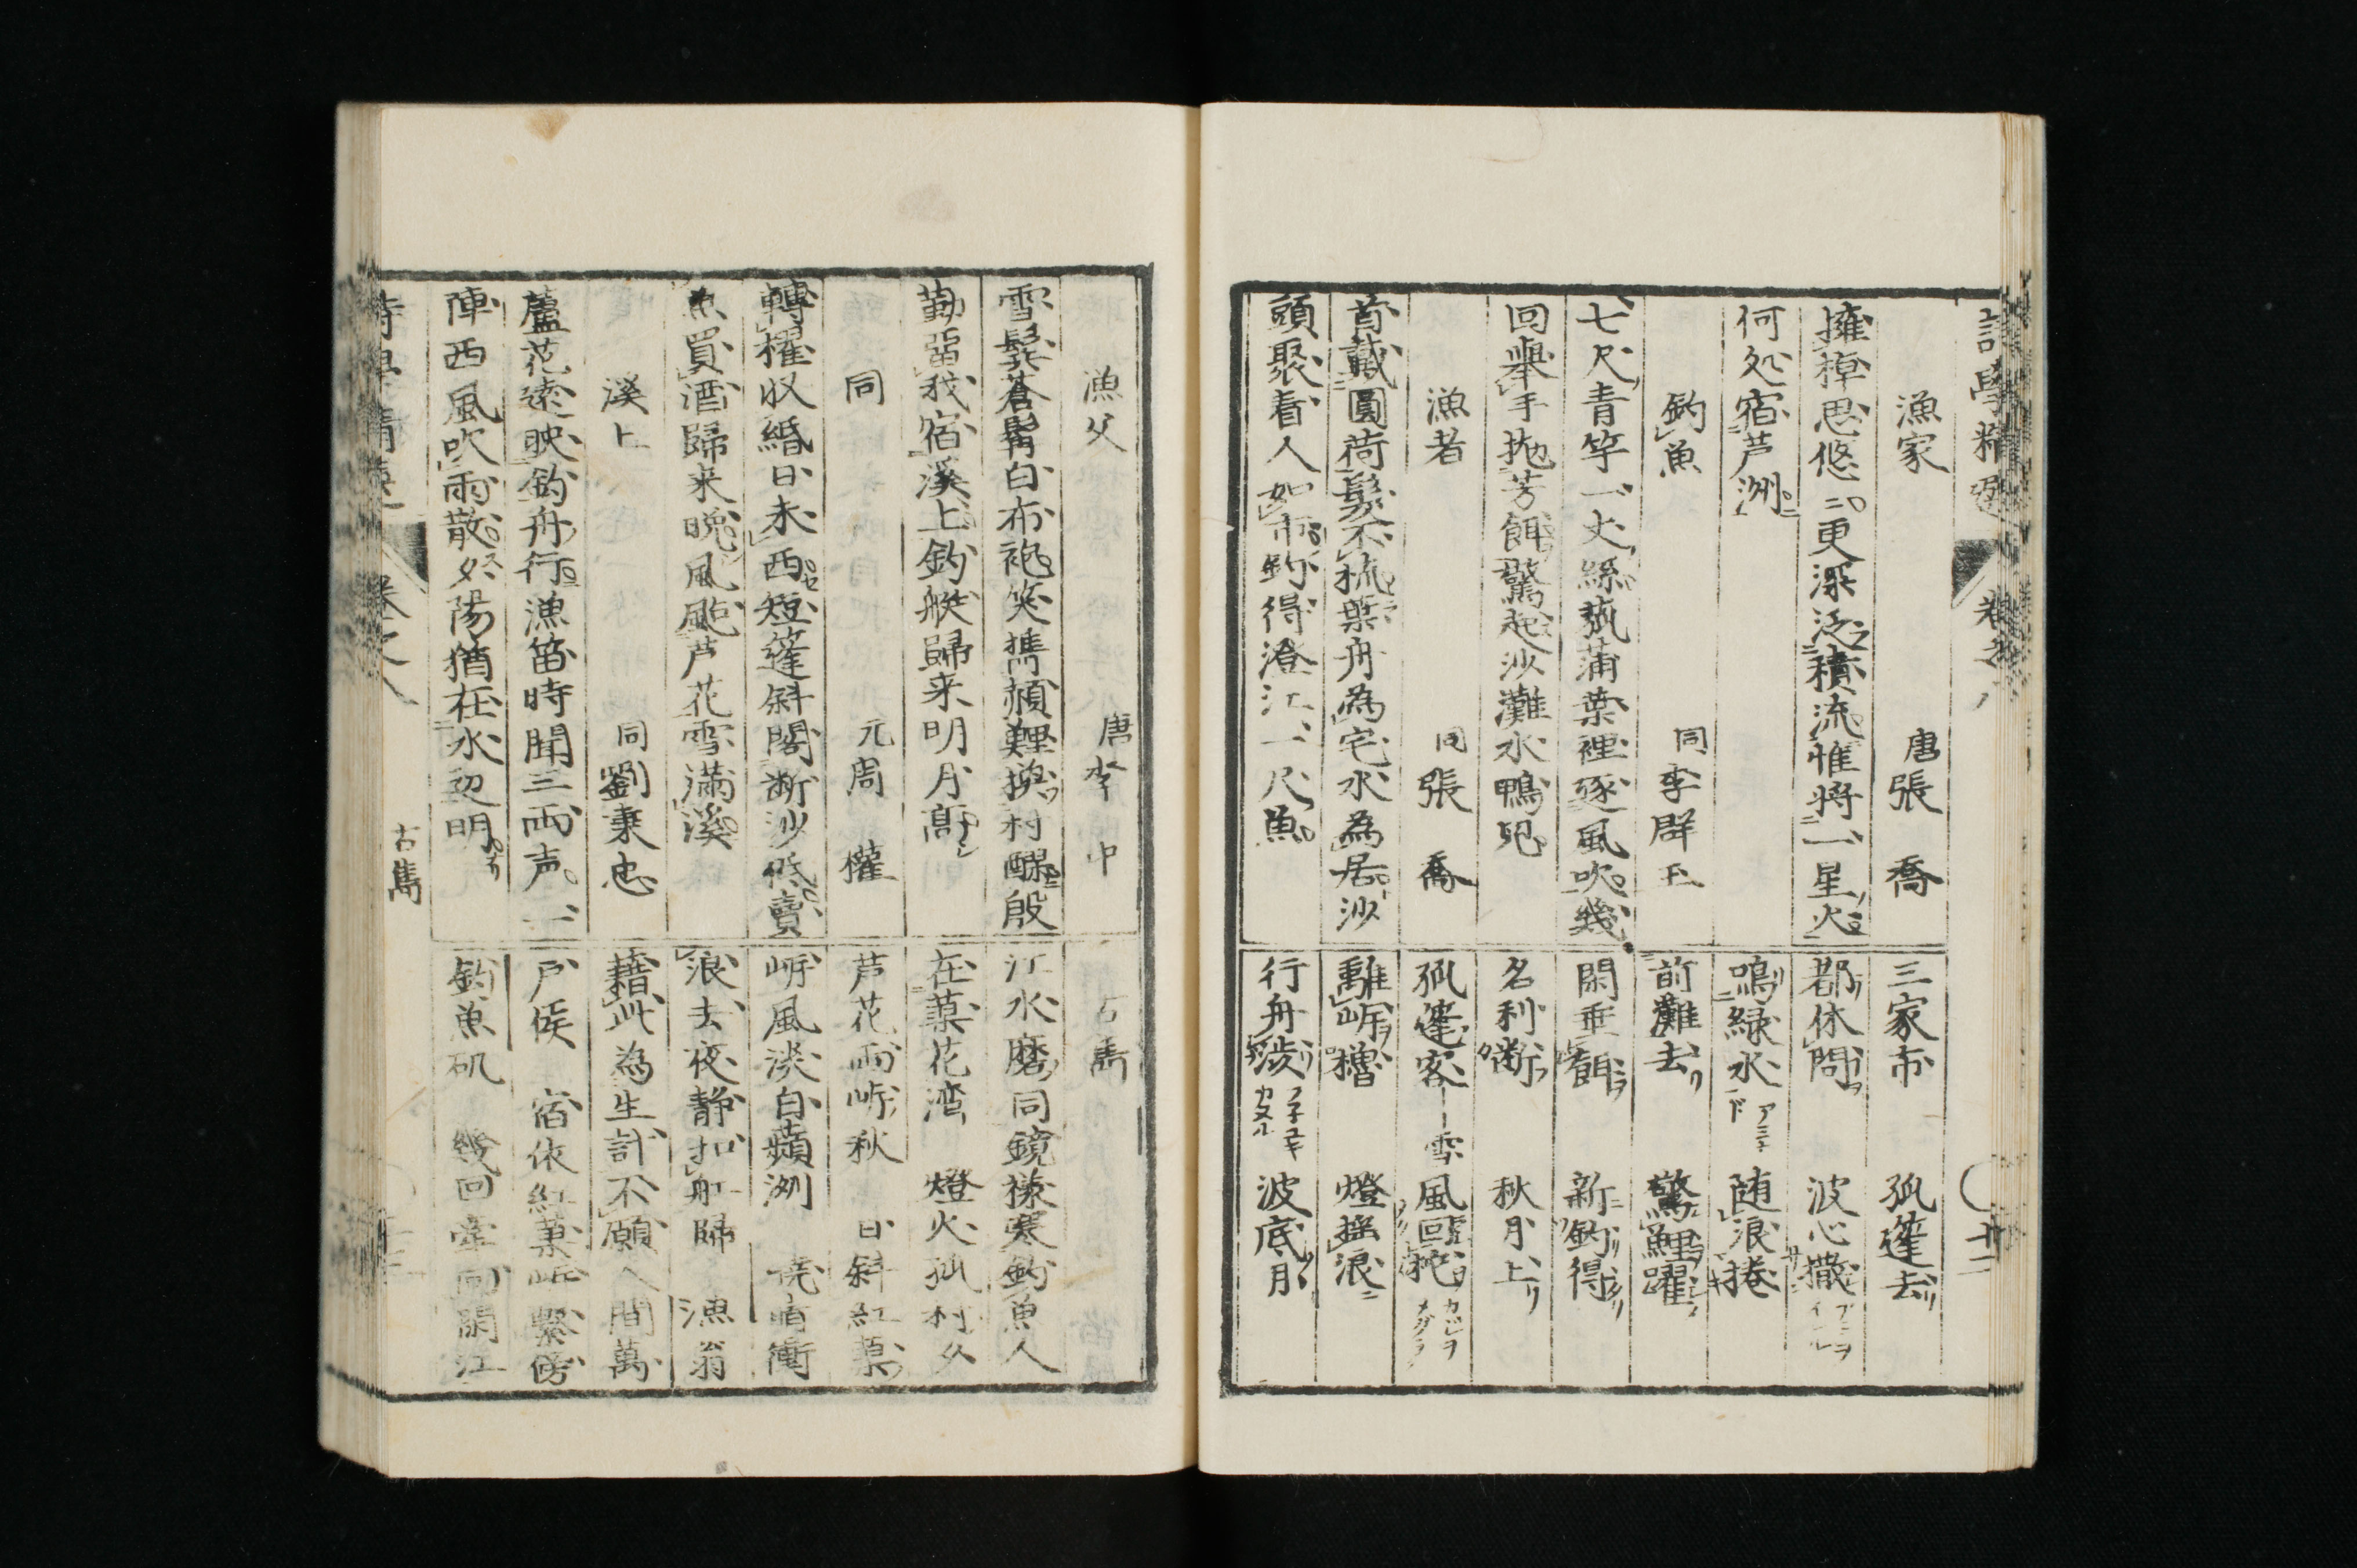 詩學精選 卷之八
漁家 唐張 喬
擁棹思悠〻更深泛積流惟將一星火
何処宿芦洲
釣魚 同李群玉
七尺青竿一丈絲菰蒲葉裡逐風吹幾
回舉手抛芳餌驚起沙灘水鴨兒
漁者 同張 喬
首戴圓荷髮不梳葉舟為宅水為居沙
頭聚看人如市釣得澄江一尺魚
三家市 孤篷去リ
都休問 波心撒
鳴綠水 随浪捲
前灘去リ 驚鯉躍
閑垂餌 新釣得
名利断 秋月上リ
孤篷客 雪風回柁
離岸櫓 燈揺浪
行舟渉 波底月
漁父 唐李 中
雪鬓蒼髯白布袍笑携赬鯉換村醪殷
勤留我宿溪上釣艇歸来明月高
同 元周 權
轉櫂収緡日未西短篷斜閣断沙低賣
魚買酒歸来晩風颭芦花雪滿溪
溪上 同劉秉忠
蘆花遠映釣舟行漁笛時聞三両声一
陣西風吹雨散夕陽猶在水辺明
古雋
江水磨同鏡様寒釣魚人
在蓼花湾 燈火孤村夕
芦花両岸秋 日斜紅蓼
岍風淡白蘋洲 衝
浪去夜静扣舡歸 漁翁
藉此為生計不願人間萬
戸侯 宿依紅蓼岍繫傍
釣魚矶 幾回 江
詩學精選 卷之八 古雋